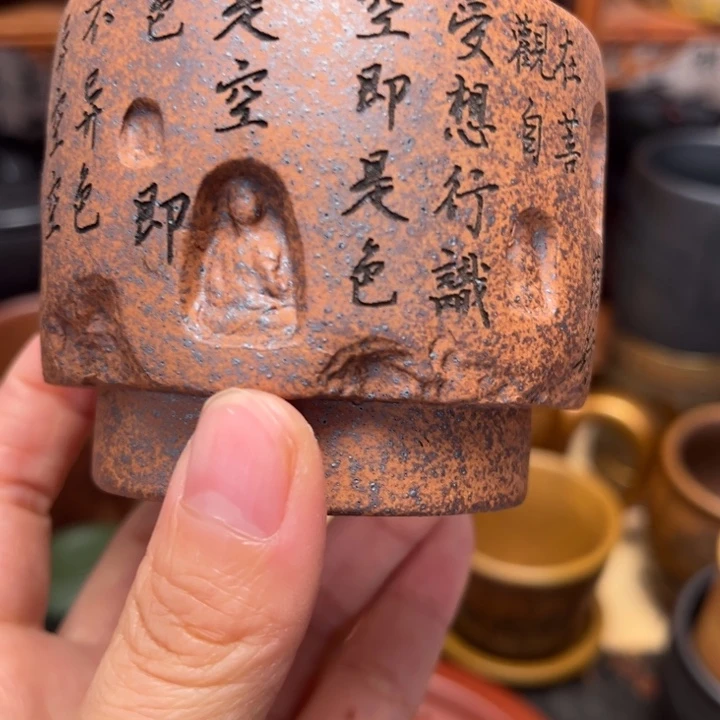 空空
不异色
色即
是空
空即是色
受想行識
觀自
在菩